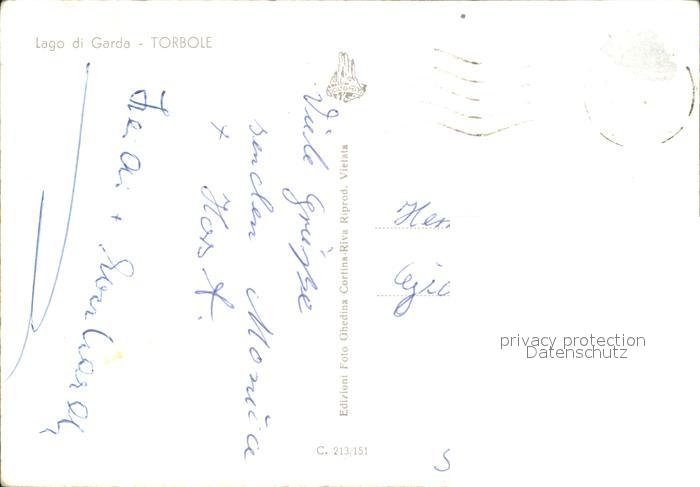 Lago di Garda - TORBOLE
Viele Grüsse
senden Monica
+ Horst.
Heidi +
Edizioni Foto Ghedina Cortina-Riva Riprod. Vietata
C. 213/151
Her
privacy protection
Datenschutz